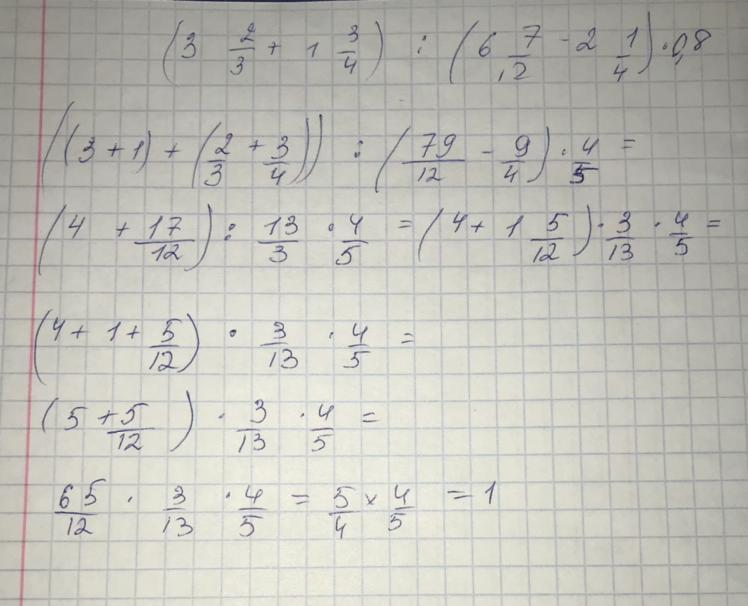 (3 2/3 + 1 3/4) : (6 7/12 - 2 1/4) · 0,8
((3 + 1) + (2/3 + 3/4)) : (79/12 - 9/4) · 4/5 =
(4 + 17/12) : 13/3 · 4/5 = (4 + 1 5/12) · 3/13 · 4/5 =
(4 + 1 + 5/12) · 3/13 · 4/5 =
(5 + 5/12) · 3/13 · 4/5 =
65/12 · 3/13 · 4/5 = 5/4 × 4/5 = 1